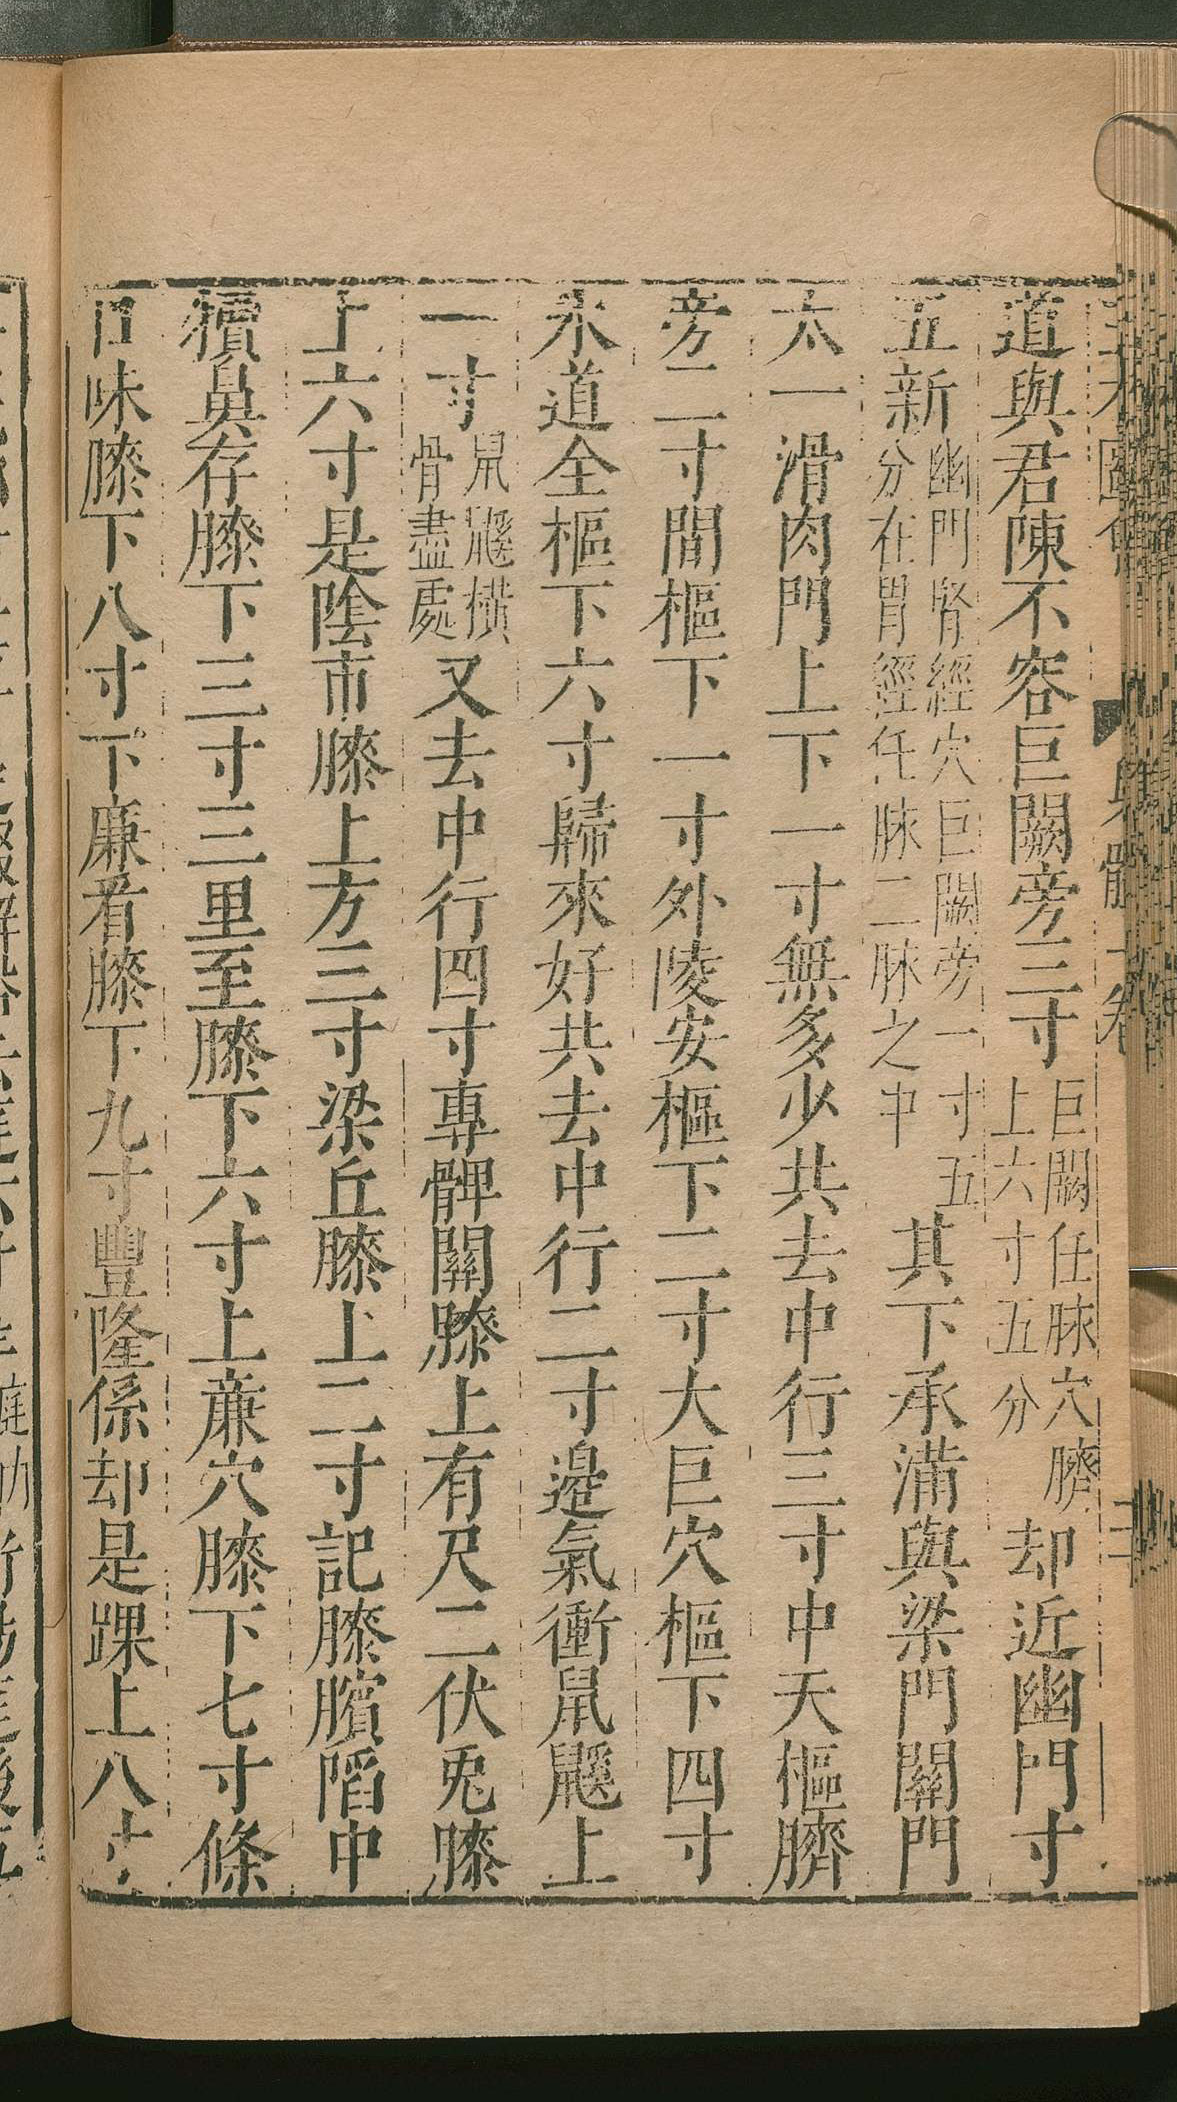 道與君陳不容巨闕旁三寸巨闕任脉穴臍上六寸五分却近幽門寸
五新幽門腎經穴巨闕旁一寸五分在胃經任脉二脉之中其下承滿與梁門關門
太一滑肉門上下一寸無多少共去中行三寸中天樞臍
旁二寸間樞下一寸外陵安樞下二寸大巨穴樞下四寸
水道全樞下六寸歸來好共去中行二寸邉氣衝鼠鼷上
一寸鼠鼷橫骨盡處又去中行四寸專髀關膝上有尺二伏兎膝
上六寸是陰市膝上方三寸梁丘膝上二寸記膝臏䧟中
犢鼻存膝下三寸三里至膝下六寸上廉穴膝下七寸條
口味膝下八寸下廉看膝下九寸豐隆係却是踝上八寸